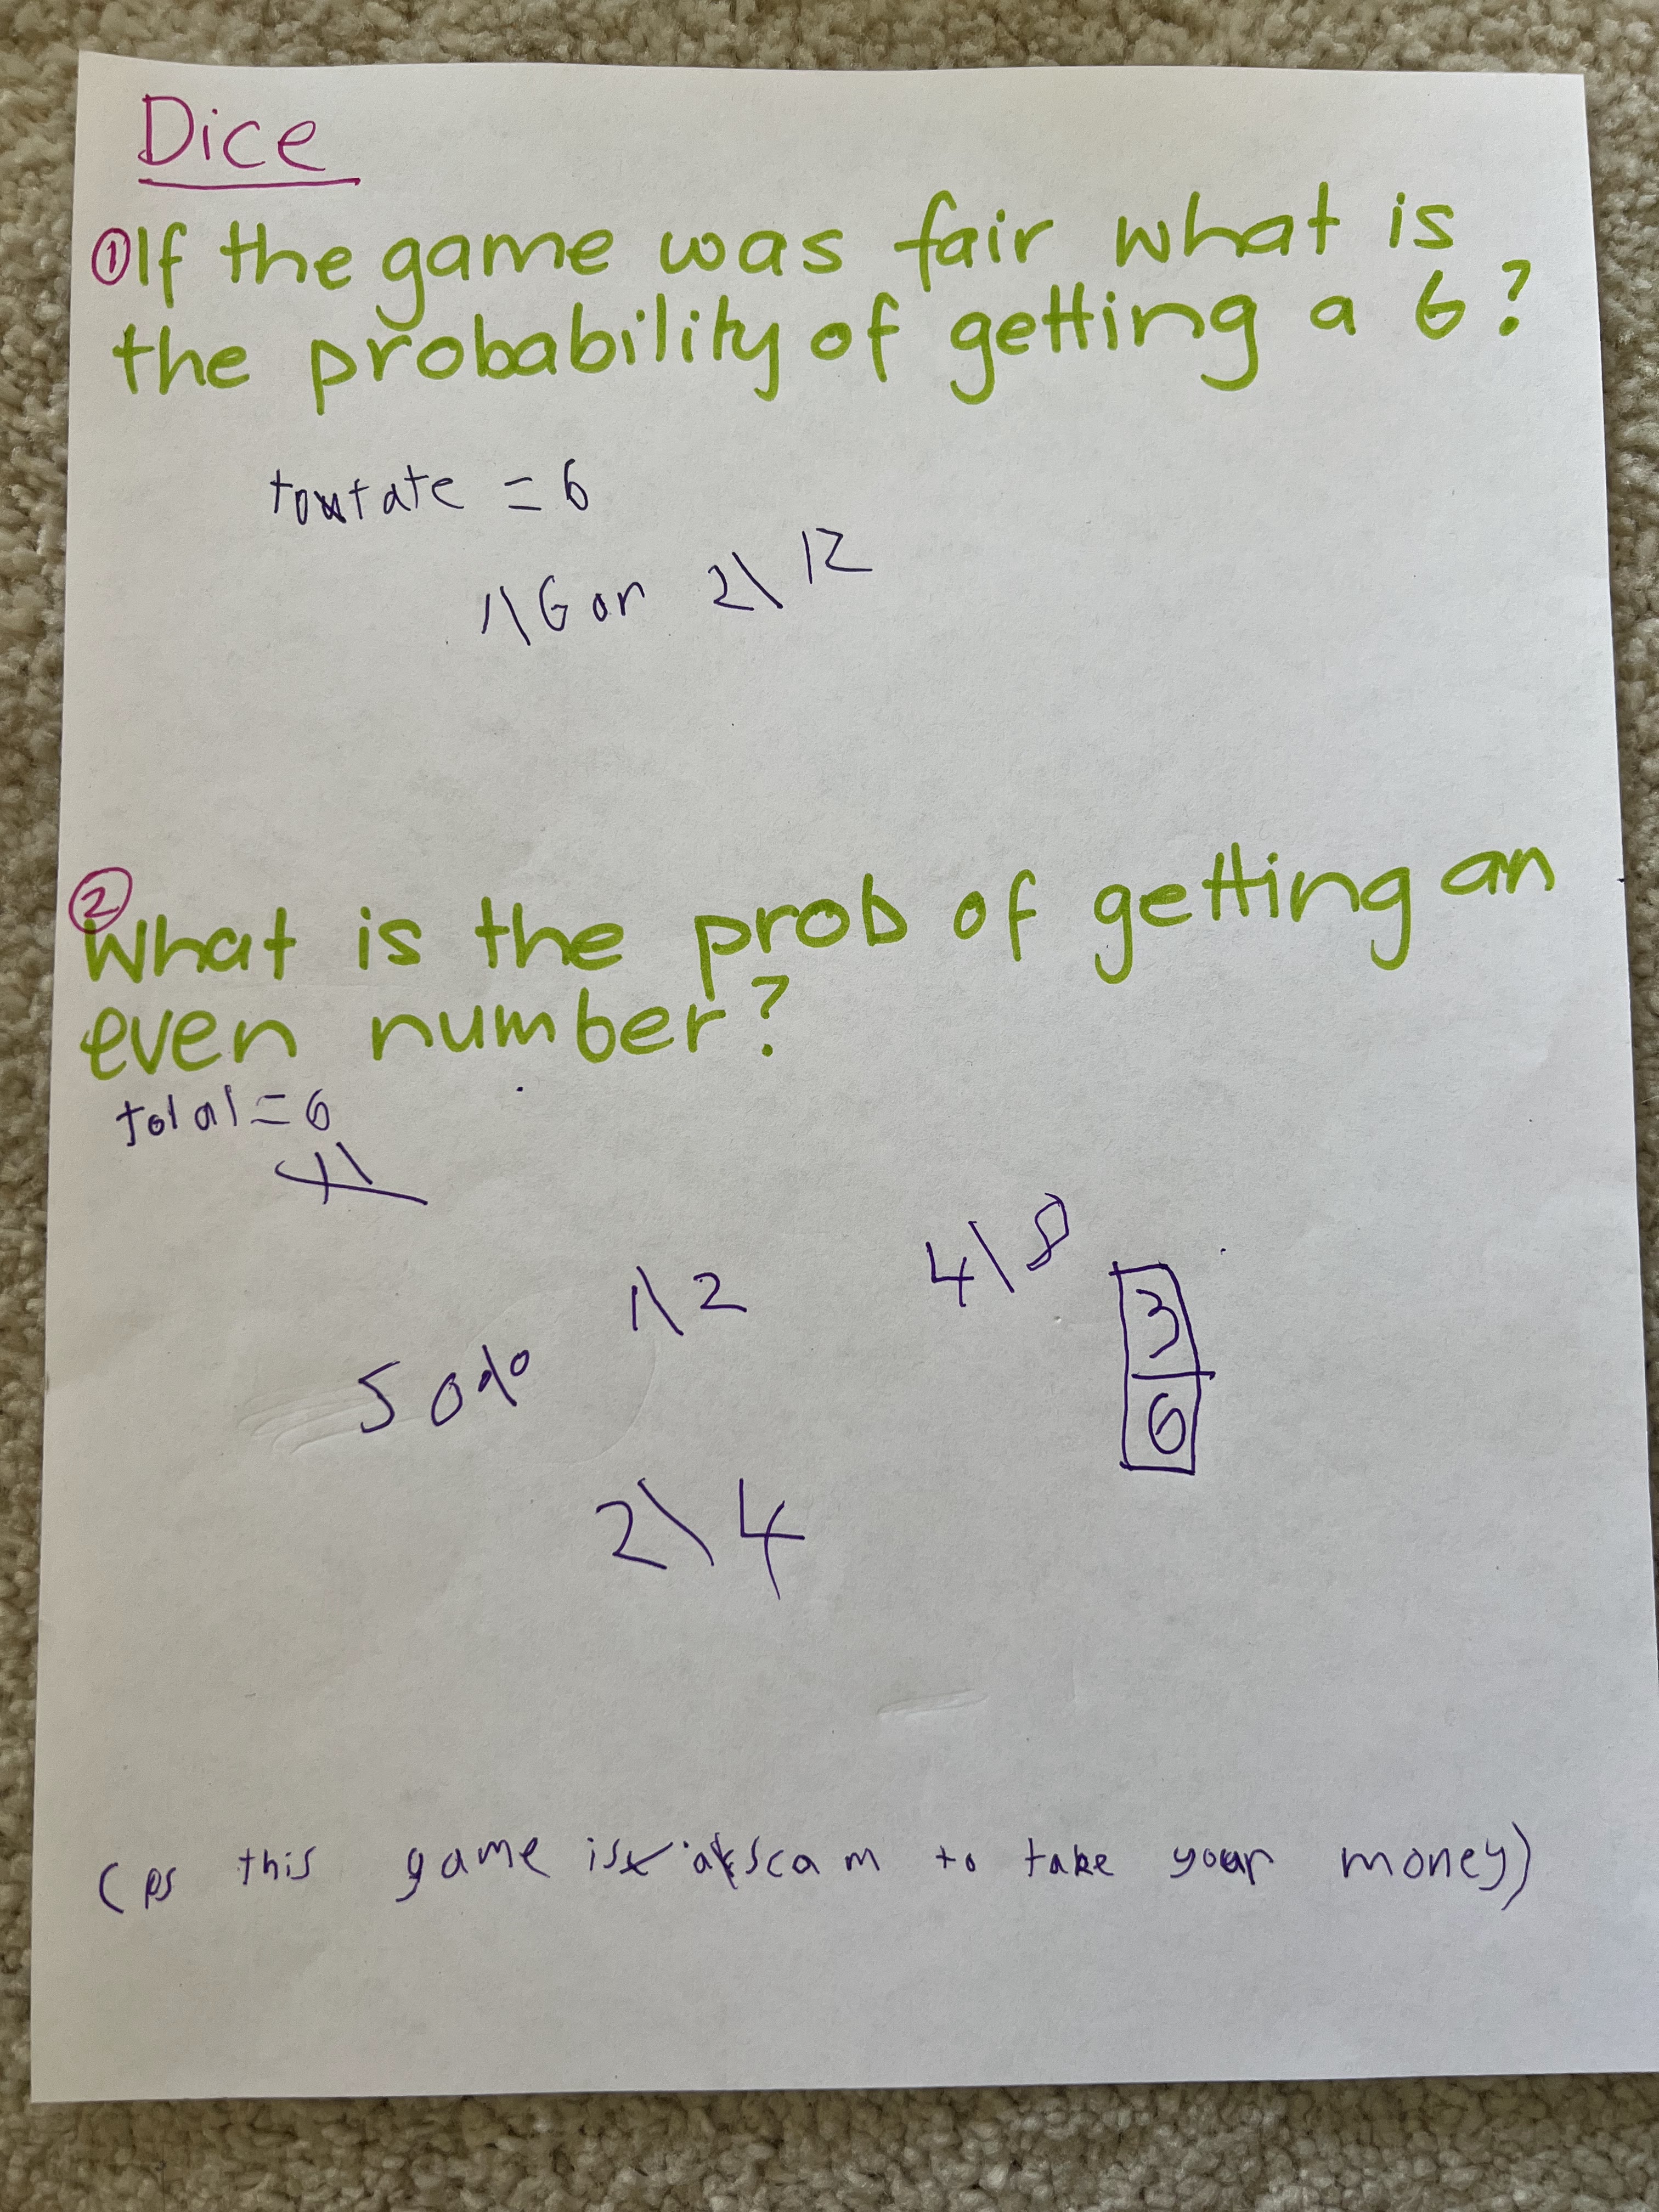 Dice
① If the game was fair what is
the probability of getting a 6?
= 6
1\6 or 2\12
② What is the prob of getting an
even number?
total = 6
1\2
4\8
3
6
50%
2\4
(ps this game is a scam to take your money)